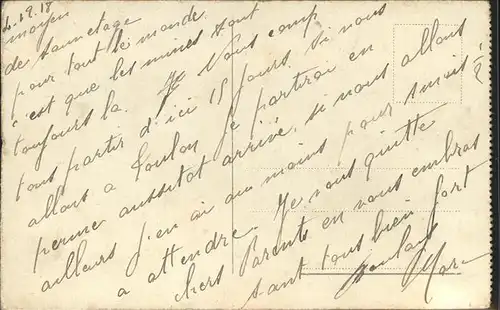 4.12.18
moyen
de sauvetage
pour tout le monde.
c'est que les mines sont
toujours la. Je vous comp
tous partir d'ici 15 jours. Si nous
allons a Toulon je partirai en
perme aussitot arrivé, si nous allons
ailleurs j'en ai au moins pour 2 mois
a attendre. Je vous quitte
chers Parents en vous embras
sant tous bien fort
Marc